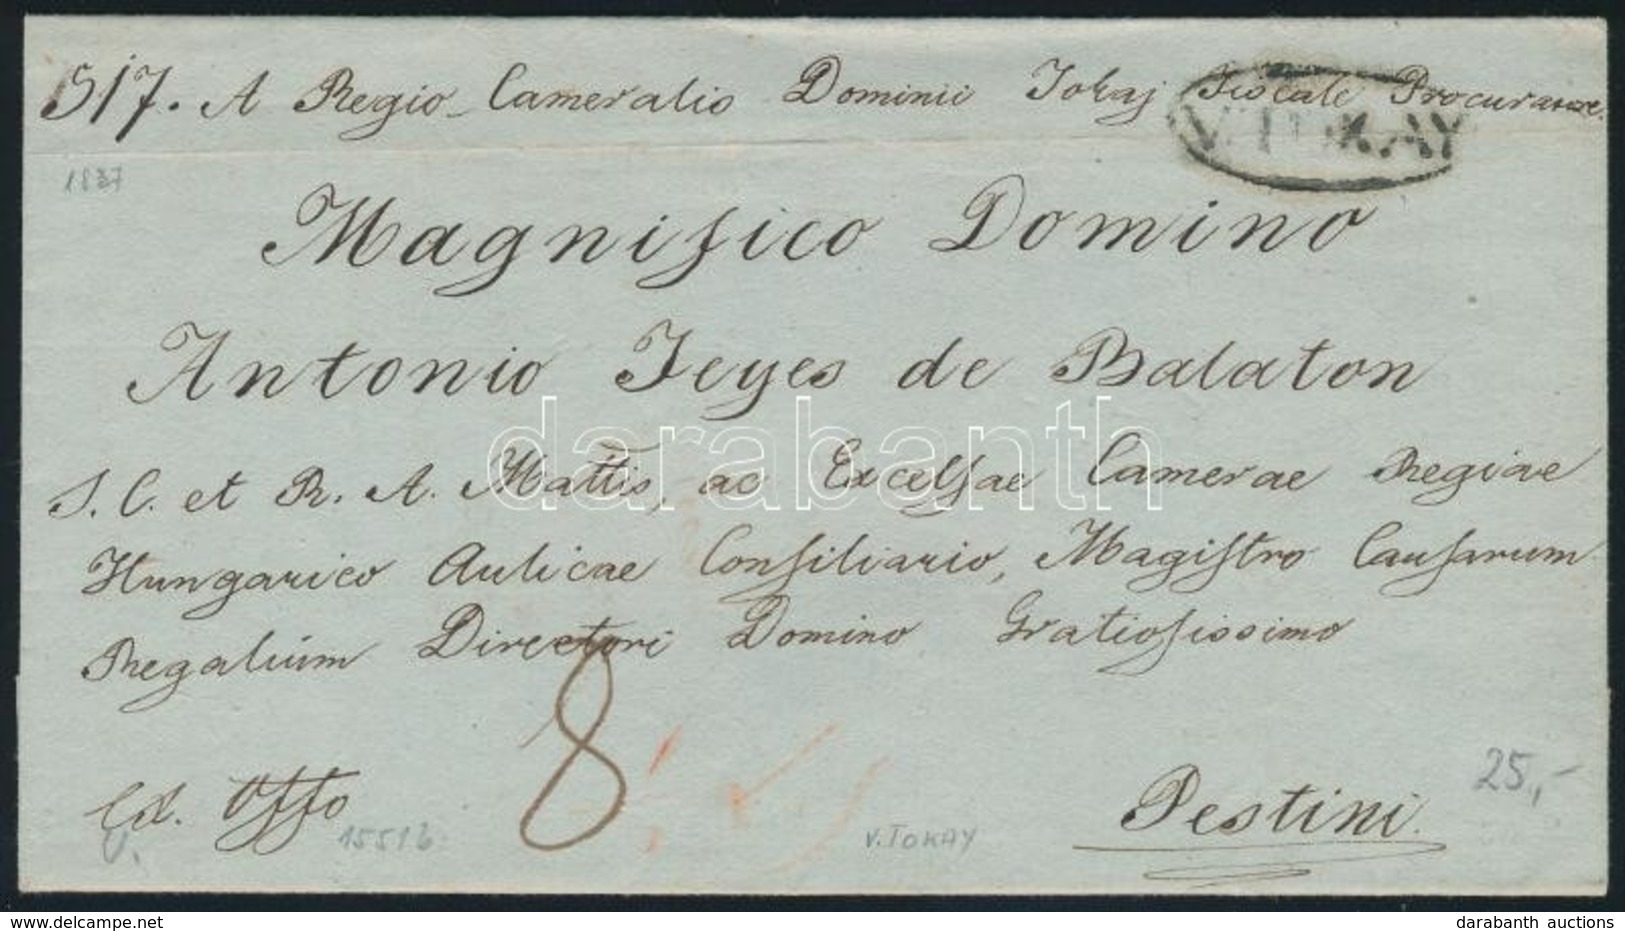 517. A Regio Cameralis Dominii Tokaj Fiscale Procuratore.
V. TOKAY
1837
Magnifico Domino
Antonio Jeyes de Balaton
S. C. et R. A. Mattis, ac Excelsae Camerae Regiae
Hungarico Aulicae Consiliario, Magistro Causarum
Regalium Directori Domino Gratiosissimo
8
Ex. Offo
15516
V. TOKAY
Pestini.
25,-
darabanth
www.delcampe.net
darabanth auctions